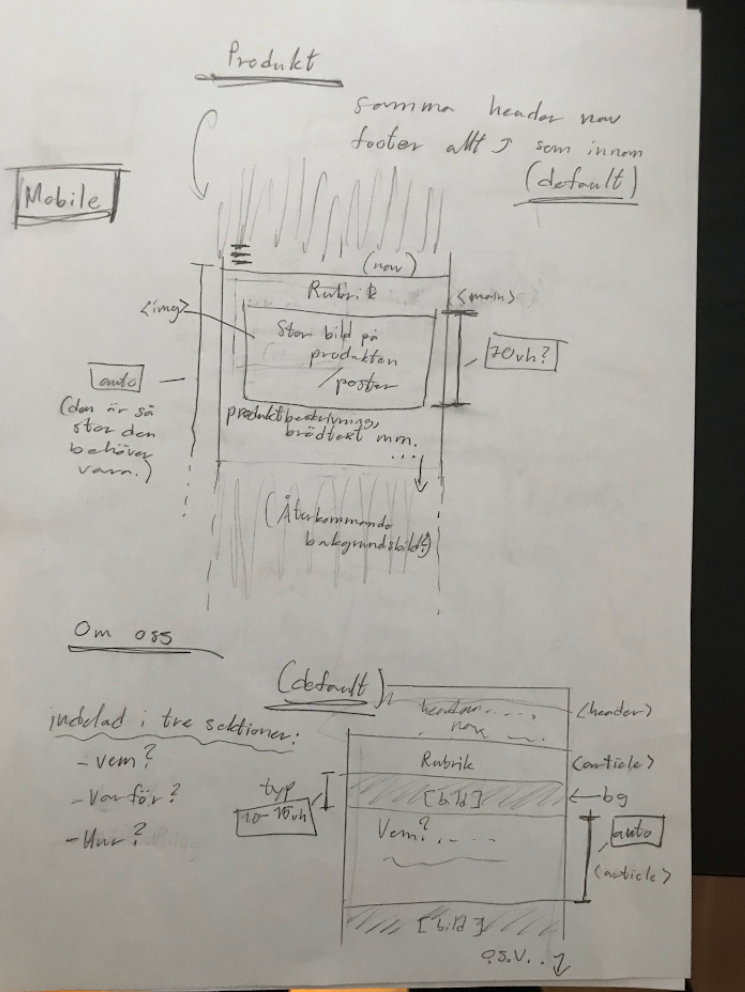 Produkt
samma header nav
footer allt som innan
(default)
Mobile
(nav)
Rubrik
<main>
<img>
Stor bild på
produkten
/poster
70vh?
auto
(den är så
stor den
behöver
vara.)
produktbeskrivning,
brödtext mm.
...
(Återkommande
bakgrundsbild?)
Om oss
(default)
indelad i tre sektioner:
- Vem?
- Varför?
- Hur?
header.....
nav
<header>
Rubrik
<article>
typ
10-15vh
[bild]
bg
Vem?. . - - -
auto
<article>
[bild]
o.s.v...